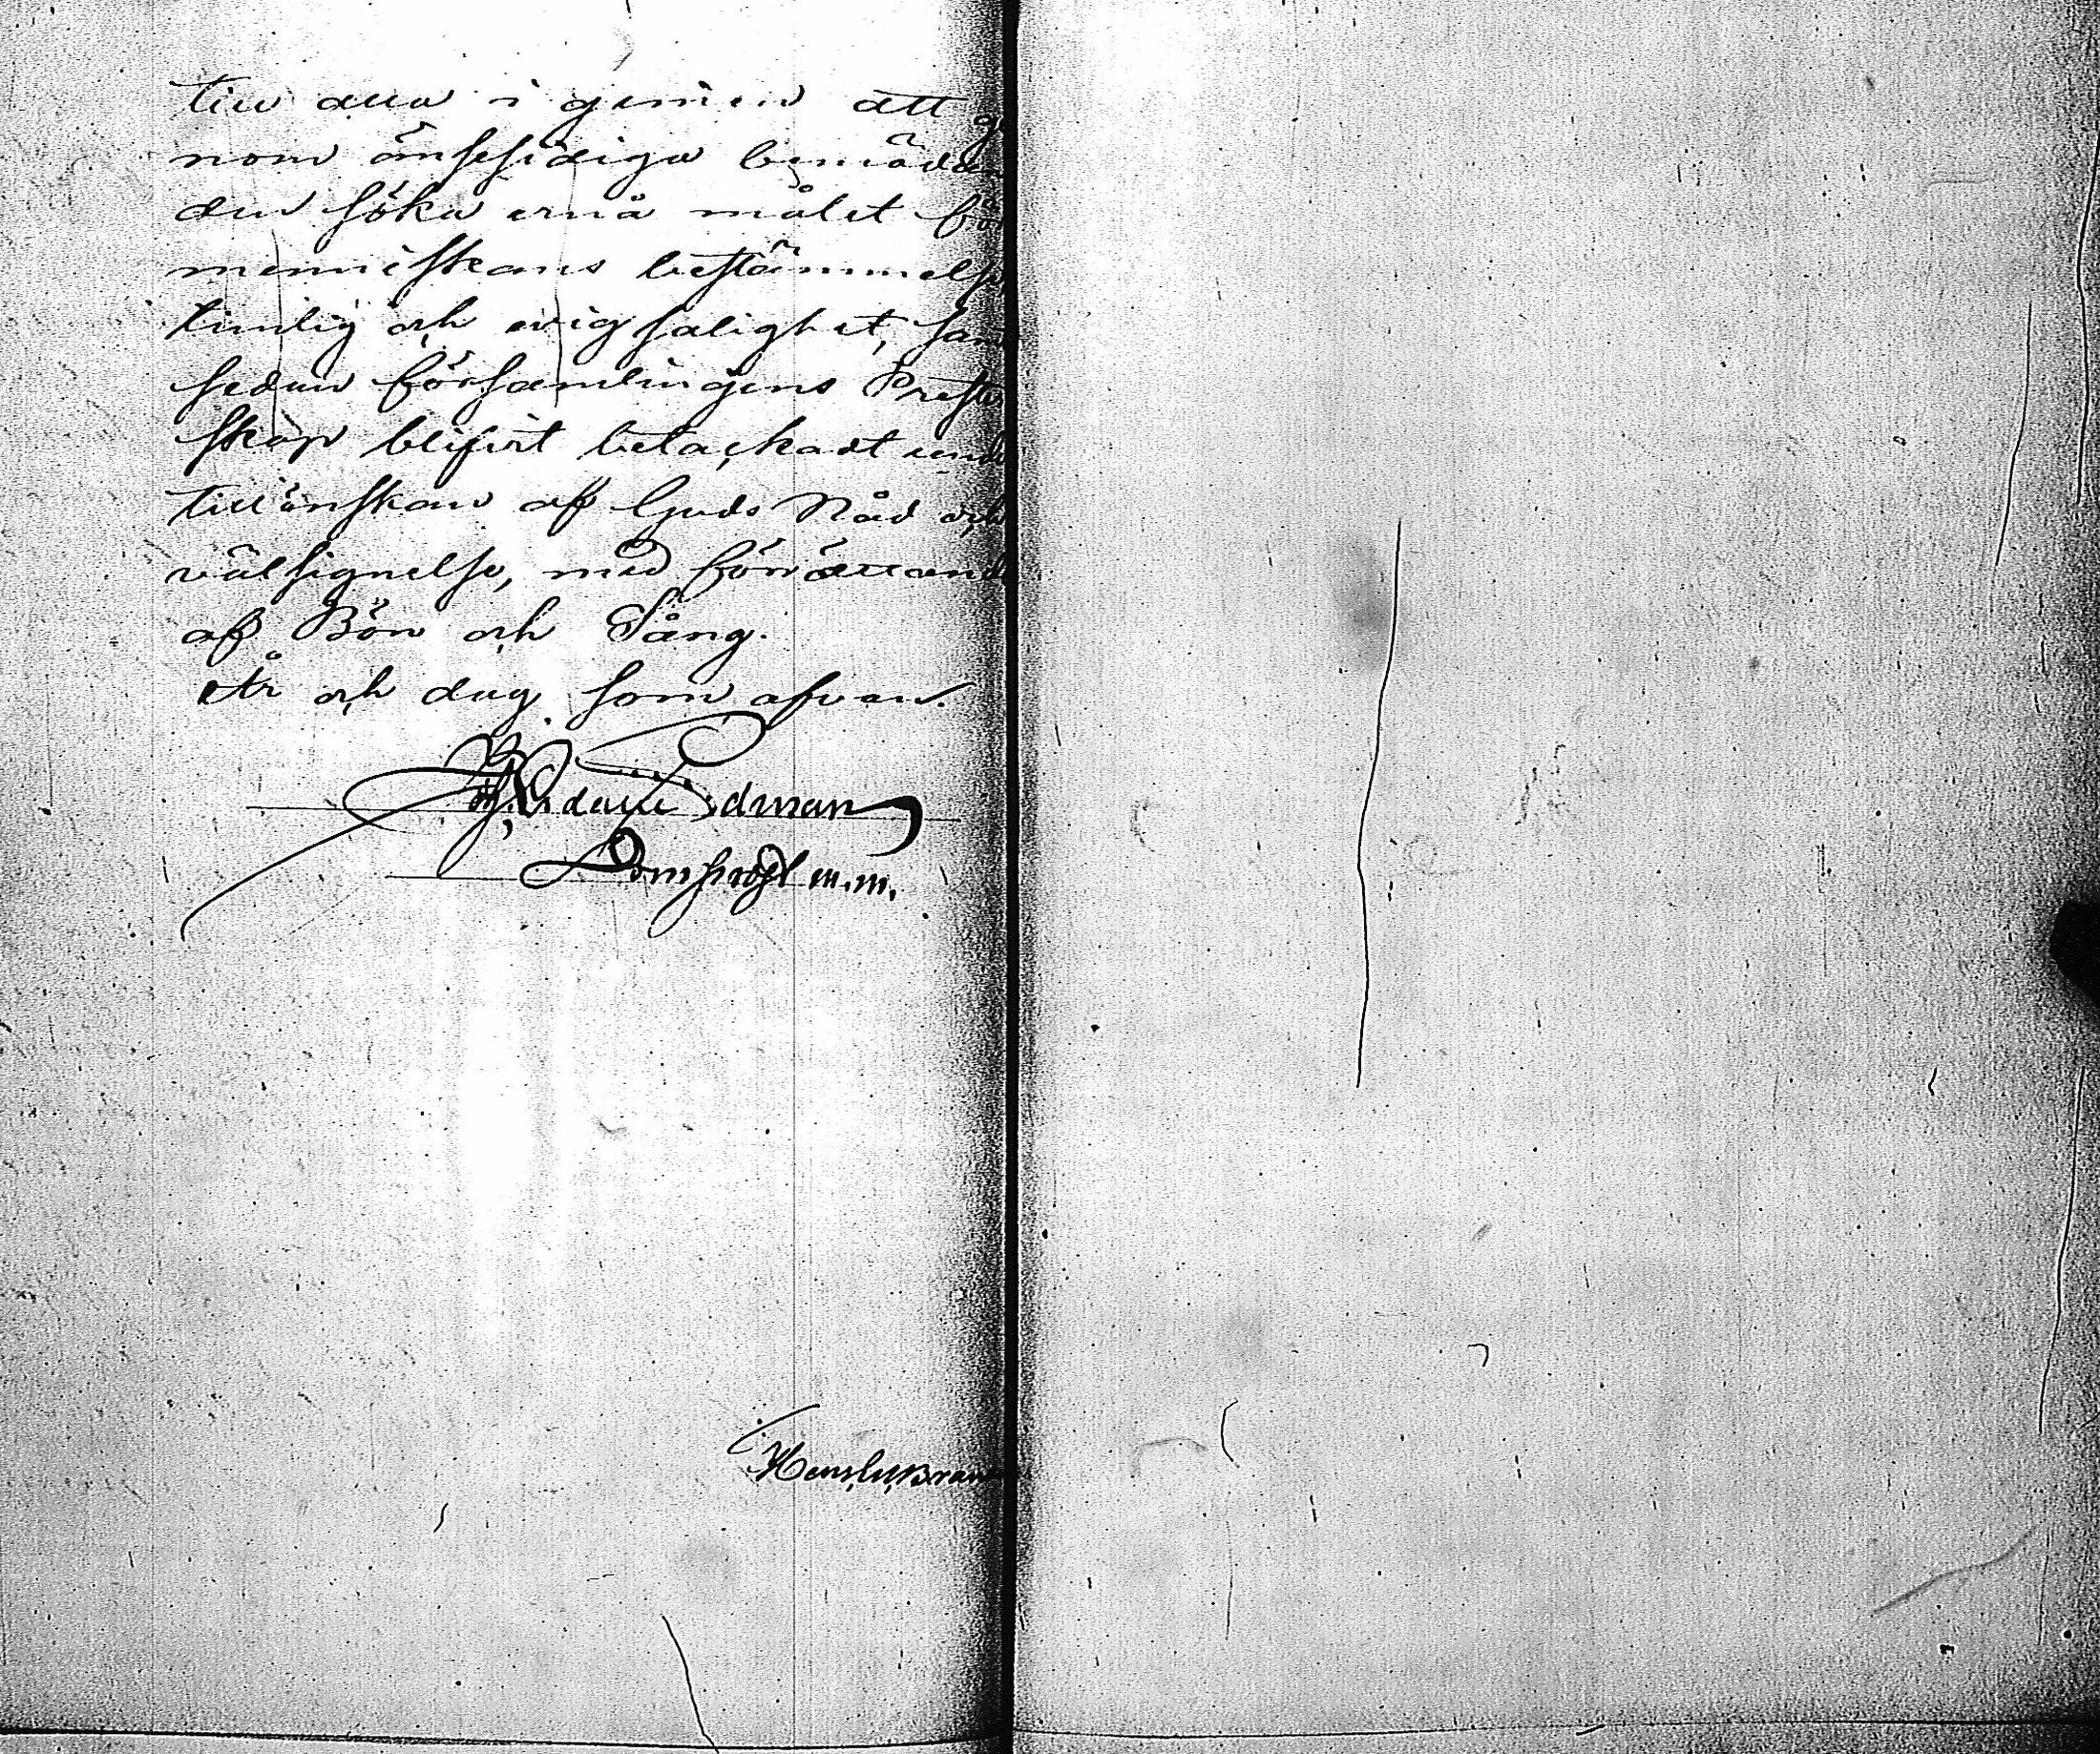 till alla i gemen att ge
nom ömsesidiga bemödan
den söka ernå målet för
menniskans bestämmelse,
timlig och evig salighet, samt
sedan församlingens Prester
skap blifvit betackadt under
tillönskan af Guds Nåd och
välsignelse, med förrättande
af Bön och Sång.
År och dag som ofvan.
Ödman
Domprost m.m.